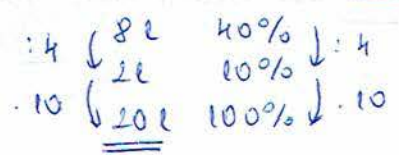 : 4 8 l 40% : 4
2 l 10%
. 10 20 l 100% . 10